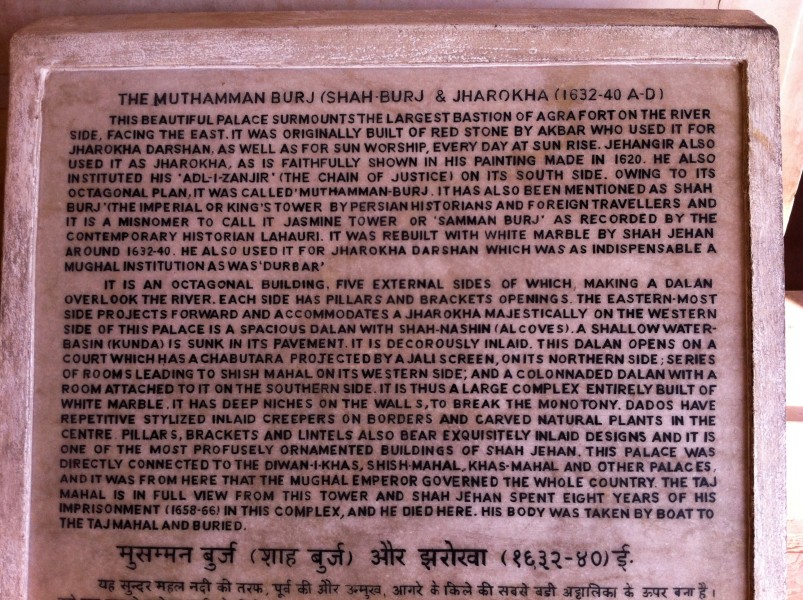 THE MUTHAMMAN BURJ (SHAH-BURJ & JHAROKHA (1632-40 A-D)
THIS BEAUTIFUL PALACE SURMOUNTS THE LARGEST BASTION OF AGRA FORT ON THE RIVER
SIDE, FACING THE EAST. IT WAS ORIGINALLY BUILT OF RED STONE BY AKBAR WHO USED IT FOR
JHAROKHA DARSHAN, AS WELL AS FOR SUN WORSHIP, EVERY DAY AT SUN RISE. JEHANGIR ALSO
USED IT AS JHAROKHA, AS IS FAITHFULLY SHOWN IN HIS PAINTING MADE IN 1620. HE ALSO
INSTITUTED HIS 'ADL-I-ZANJIR' (THE CHAIN OF JUSTICE) ON ITS SOUTH SIDE. OWING TO ITS
OCTAGONAL PLAN, IT WAS CALLED 'MUTHAMMAN-BURJ. IT HAS ALSO BEEN MENTIONED AS SHAH
BURJ' (THE IMPERIAL OR KING'S TOWER BY PERSIAN HISTORIANS AND FOREIGN TRAVELLERS AND
IT IS A MISNOMER TO CALL IT JASMINE TOWER OR 'SAMMAN BURJ' AS RECORDED BY THE
CONTEMPORARY HISTORIAN LAHAURI. IT WAS REBUILT WITH WHITE MARBLE BY SHAH JEHAN
AROUND 1632-40. HE ALSO USED IT FOR JHAROKHA DARSHAN WHICH WAS AS INDISPENSABLE A
MUGHAL INSTITUTION AS WAS 'DURBAR'
IT IS AN OCTAGONAL BUILDING, FIVE EXTERNAL SIDES OF WHICH, MAKING A DALAN
OVERLOOK THE RIVER. EACH SIDE HAS PILLARS AND BRACKETS OPENINGS. THE EASTERN-MOST
SIDE PROJECTS FORWARD AND ACCOMMODATES A JHAROKHA MAJESTICALLY ON THE WESTERN
SIDE OF THIS PALACE IS A SPACIOUS DALAN WITH SHAH-NASHIN (ALCOVES). A SHALLOW WATER-
BASIN (KUNDA) IS SUNK IN ITS PAVEMENT. IT IS DECOROUSLY INLAID. THIS DALAN OPENS ON A
COURT WHICH HAS A CHABUTARA PROJECTED BY A JALI SCREEN, ON ITS NORTHERN SIDE; SERIES
OF ROOMS LEADING TO SHISH MAHAL ON ITS WESTERN SIDE; AND A COLONNADED DALAN WITH A
ROOM ATTACHED TO IT ON THE SOUTHERN SIDE. IT IS THUS A LARGE COMPLEX ENTIRELY BUILT OF
WHITE MARBLE. IT HAS DEEP NICHES ON THE WALLS, TO BREAK THE MONOTONY. DADOS HAVE
REPETITIVE STYLIZED INLAID CREEPERS ON BORDERS AND CARVED NATURAL PLANTS IN THE
CENTRE. PILLARS, BRACKETS AND LINTELS ALSO BEAR EXQUISITELY INLAID DESIGNS AND IT IS
ONE OF THE MOST PROFUSELY ORNAMENTED BUILDINGS OF SHAH JEHAN. THIS PALACE WAS
DIRECTLY CONNECTED TO THE DIWAN-I-KHAS, SHISH-MAHAL, KHAS-MAHAL AND OTHER PALACES,
AND IT WAS FROM HERE THAT THE MUGHAL EMPEROR GOVERNED THE WHOLE COUNTRY. THE TAJ
MAHAL IS IN FULL VIEW FROM THIS TOWER AND SHAH JEHAN SPENT EIGHT YEARS OF HIS
IMPRISONMENT (1658-66) IN THIS COMPLEX, AND HE DIED HERE. HIS BODY WAS TAKEN BY BOAT TO
THE TAJ MAHAL AND BURIED.
मुसम्मन बुर्ज (शाह बुर्ज) और झरोखा (१६३२-४०) ई.
यह सुन्दर महल नदी की तरफ, पूर्व की और उन्मुख, आगरे के किले की सबसे बडी अट्टालिका के ऊपर बना है।